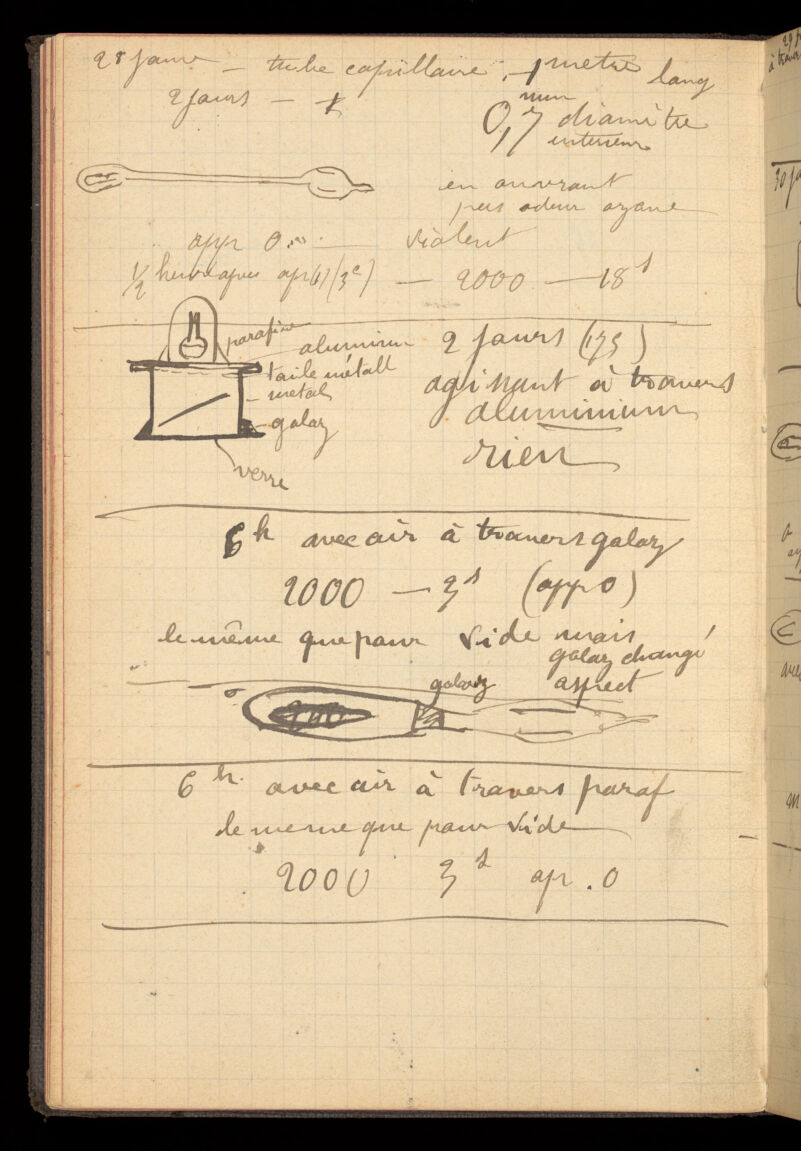 28 janv — tube capillaire, 1 metre long
2 jours —
0,7 mm diamètre
interieur
en ouvrant
pas odeur ozone
violent
app 0
1/2 heure apres — 2000 — 18 s
parafine
aluminium
toile métall
metal
galaz
verre
2 jours (175)
agissant à travers
aluminium
rien
6 h avec air à travers galaz
2000 — 3 s (app 0)
le même que pour vide mais
galaz changé
aspect
galaz
6 h. avec air à travers paraf
le meme que pour vide
2000 3 s ap. 0
29
à travers
30 ja